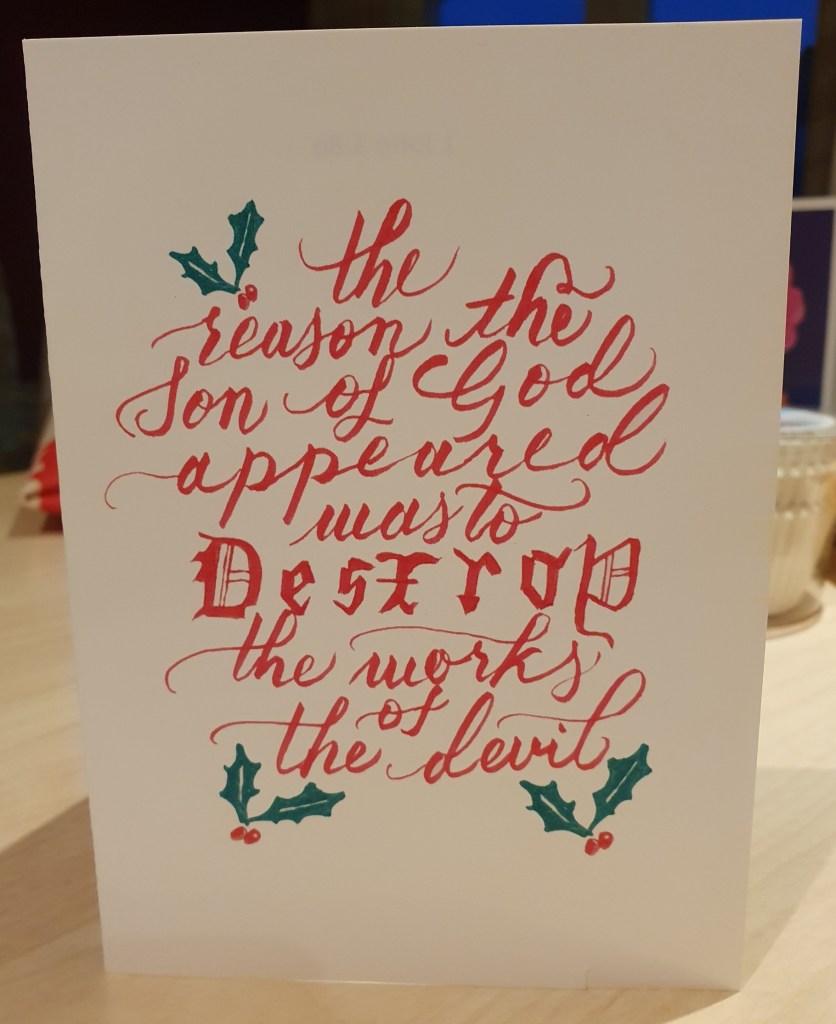 the
reason the
Son of God
appeared
was to
Destroy
the works
of
the devil